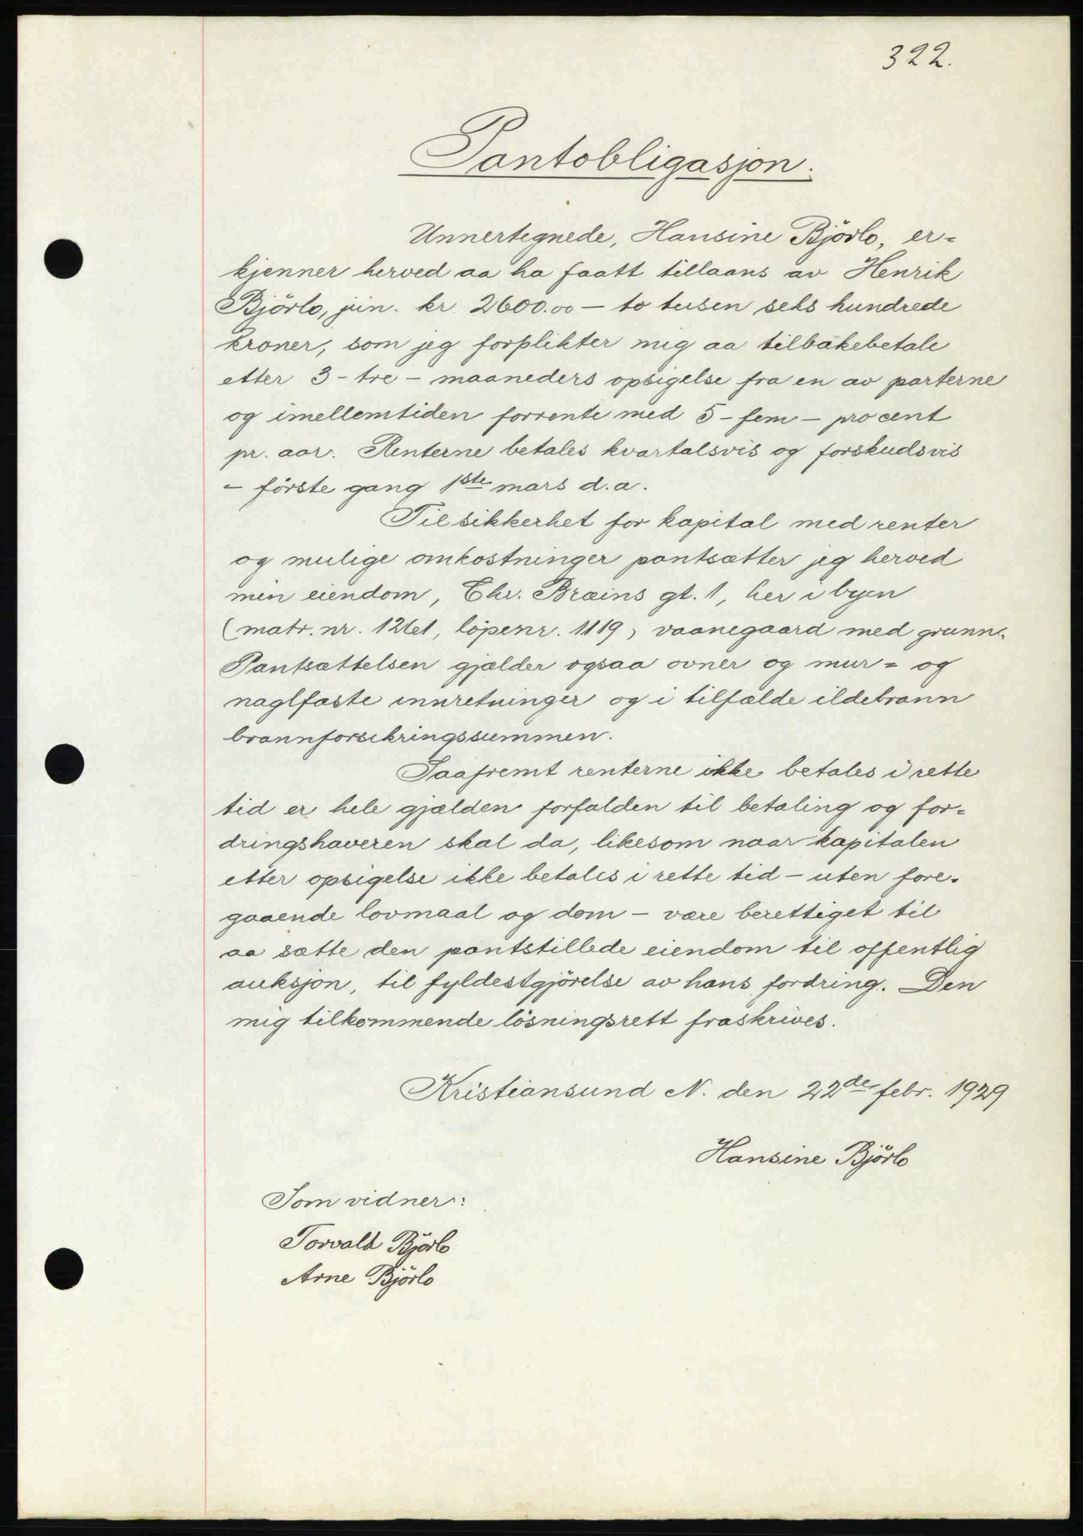 322.
Pantobligasjon.
Unnertegnede, Hansine Björlo, er=
kjenner herved aa ha faatt tillaans av Henrik
Björlo, jun. kr. 2600.00 — to tusen seks hundrede
kroner, som jeg forplikter mig aa tilbakebetale
etter 3 - tre - maaneders opsigelse fra en av parterne
og imellemtiden forrente med 5 - fem - procent
pr. aar. Renterne betales kvartalsvis og forskudsvis
- förste gang 1ste mars d.a.
Til sikkerhet for kapital med renter
og mulige omkostninger pantsætter jeg herved
min eiendom, Chr. Bræins gt. 1, her i byen
(matr. nr. 1261, löpenr. 1119) vaanegaard med grunn.
Pantsættelsen gjælder ogsaa ovner og mur= og
naglfaste innretninger og i tilfælde ildebrann
brannforsikringssummen.
Saafremt renterne ikke betales i rette
tid er hele gjælden forfalden til betaling og for=
dringshaveren skal da, likesom naar kapitalen
etter opsigelse ikke betales i rette tid - uten fore=
gaaende lovmaal og dom - være berettiget til
aa sætte den pantstillede eiendom til offentlig
auksjon, til fyldestgjörelse av hans fordring. Den
mig tilkommende lösningsrett fraskrives.
Kristiansund N. den 22de febr. 1929
Hansine Björlo
Som vidner:
Torvald Björlo
Arne Björlo